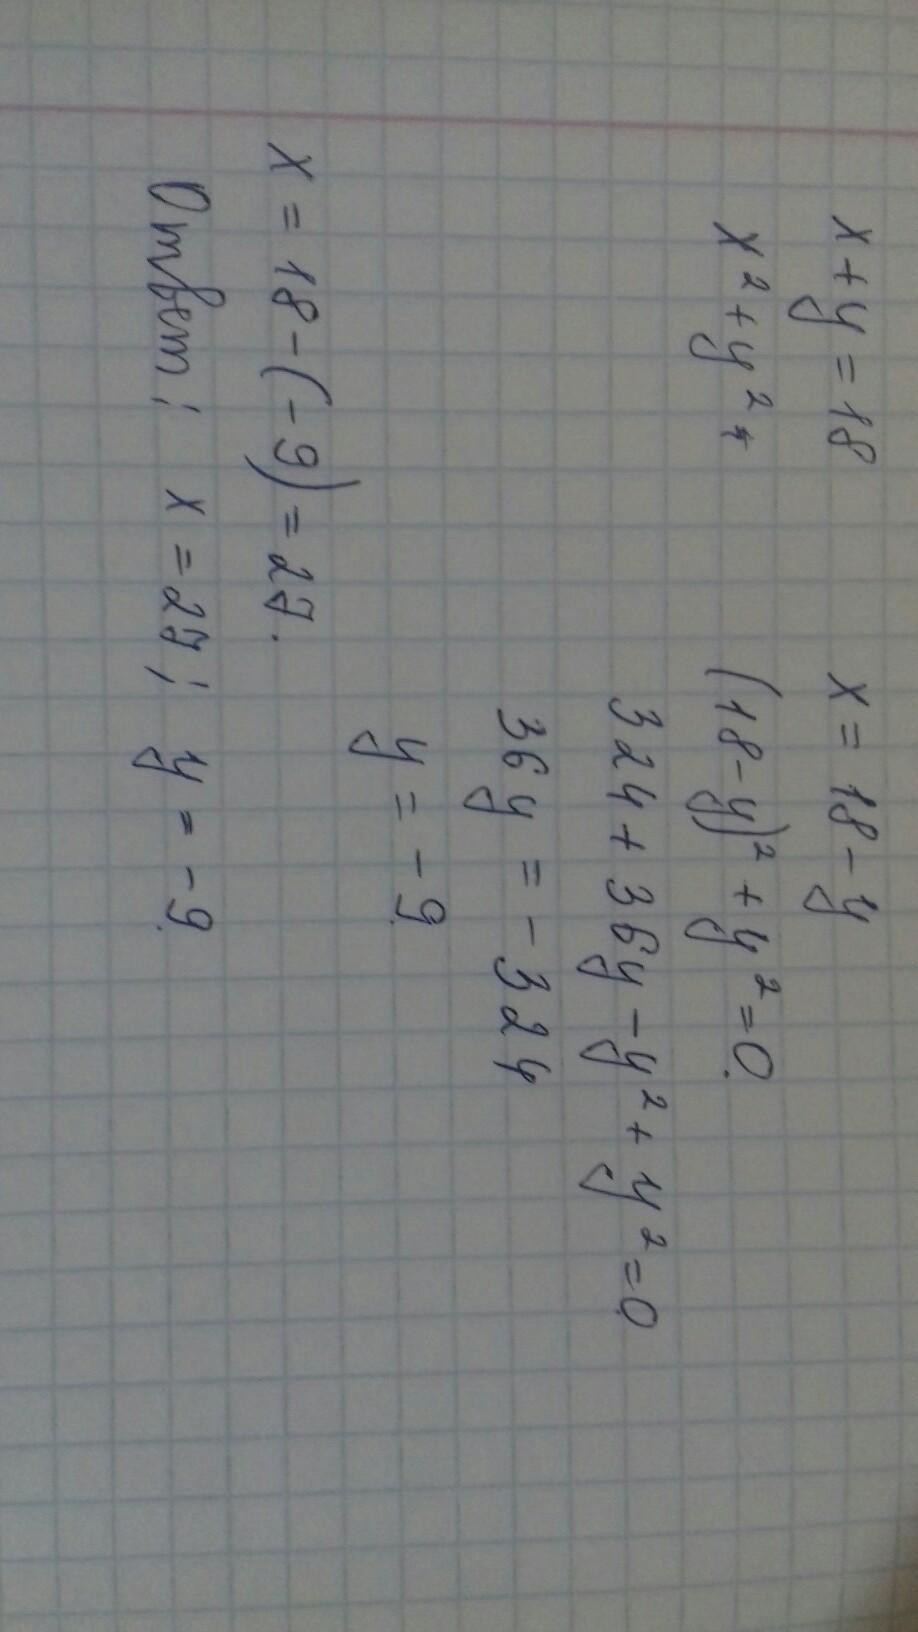 x + y = 18 x = 18 - y
x² + y² (18 - y)² + y² = 0.
324 + 36y - y² + y² = 0.
36y = -324
y = -9.
x = 18 - (-9) = 27.
Ответ: x = 27; y = -9.